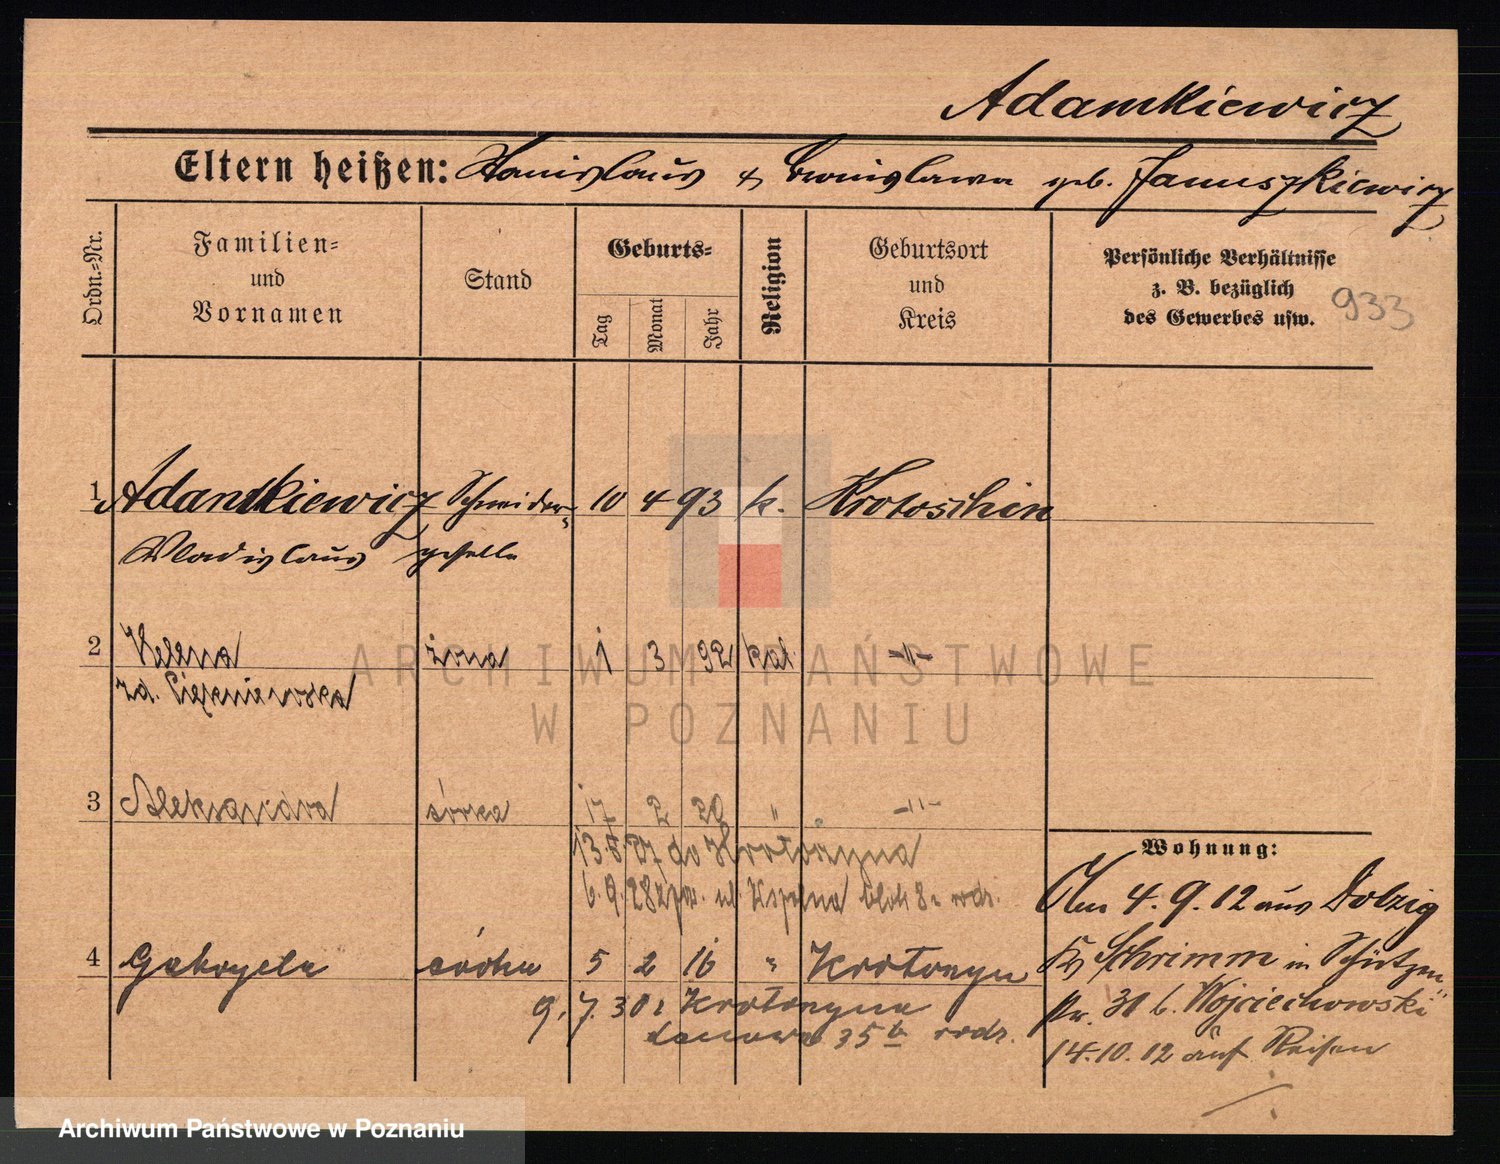 Adamkiewicz
Eltern heißen: Stanislaus & Bronislawa geb. Januszkiewicz
Ordn.=Nr.
Familien=
und
Vornamen
Stand
Geburts=
Tag
Monat
Jahr
Religion
Geburtsort
und
Kreis
Persönliche Verhältnisse
z. B. bezüglich
des Gewerbes usw.
933
1 Adamkiewicz Schneider- 10 4 93 k. Krotoschin
Wladislaus geselle
2 Helena żona 1 3 92 kat. -"-
zd. Cieśniewska
3 Aleksandra córka 17 2 20 " -"-
13. 5 27 do Krotoszyna
6. 9. 28 z pow. ul. blok 8 rodz.
4 Gabryela córka 5 2 16 " Krotoszyn
9. 7. 30 z Krotoszyna
35 b rodz.
Wohnung:
Am 4. 9. 12 aus Dolzig
Kr Schrimm in Schützen"
str. 31 b. Wojciechowski
14.10.12 auf Reisen
ARCHIWUM PAŃSTWOWE
W POZNANIU
Archiwum Państwowe w Poznaniu